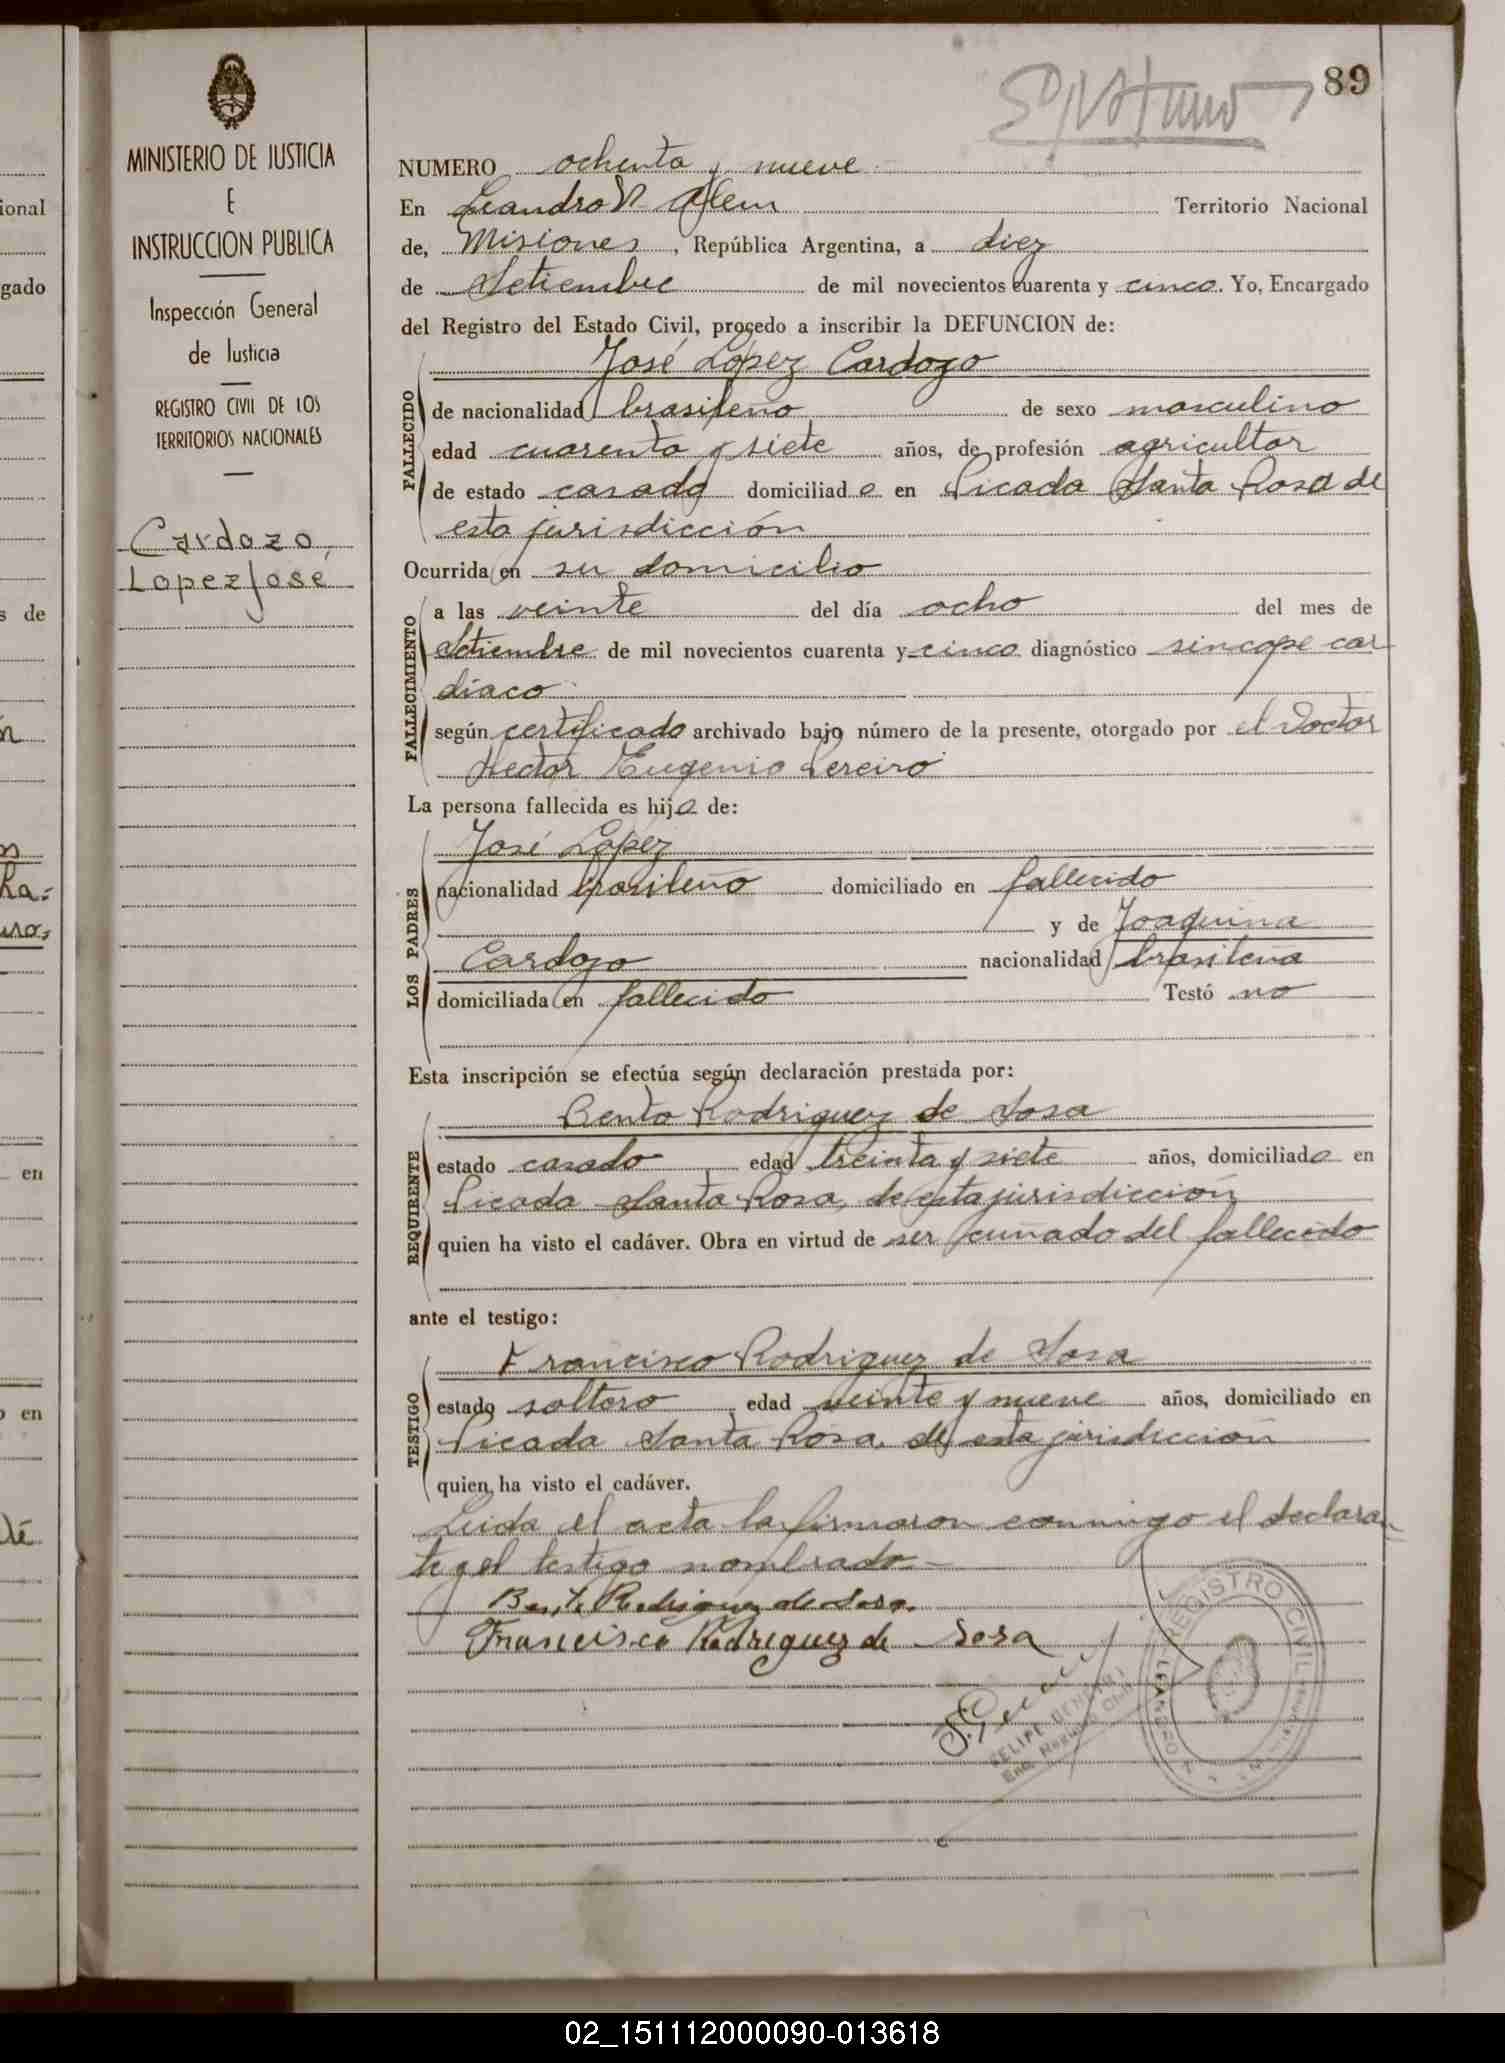 89
MINISTERIO DE JUSTICIA
E
INSTRUCCION PUBLICA
Inspección General
de Justicia
REGISTRO CIVIL DE LOS
TERRITORIOS NACIONALES
Cardozo,
Lopez José
NUMERO ochenta y nueve
En Leandro N Alem Territorio Nacional
de, Misiones, República Argentina, a diez
de Setiembre de mil novecientos cuarenta y cinco. Yo, Encargado
del Registro del Estado Civil, procedo a inscribir la DEFUNCION de:
José López Cardozo
FALLECIDO
de nacionalidad brasileño de sexo masculino
edad cuarenta y siete años, de profesión agricultor
de estado casado domiciliado en Picada Santa Rosa de
esta jurisdicción
Ocurrida en su domicilio
FALLECIMIENTO
a las veinte del día ocho del mes de
Setiembre de mil novecientos cuarenta y cinco diagnóstico sincope car
diaco
según certificado archivado bajo número de la presente, otorgado por el Doctor
Hector Eugenio Pereiro
La persona fallecida es hijo de:
LOS PADRES
José López
nacionalidad brasileño domiciliado en fallecido
y de Joaquina
Cardozo nacionalidad brasileña
domiciliada en fallecido Testó no
Esta inscripción se efectúa según declaración prestada por:
REQUIRENTE
Bento Rodriguez de Sosa
estado casado edad treinta y siete años, domiciliado en
Picada Santa Rosa, de esta jurisdicción
quien ha visto el cadáver. Obra en virtud de ser cuñado del fallecido
ante el testigo:
TESTIGO
Francisco Rodriguez de Sosa
estado soltero edad veinte y nueve años, domiciliado en
Picada Santa Rosa, de esta jurisdicción
quien ha visto el cadáver.
Leida el acta la firmaron conmigo el declaran
te y el testigo nombrado
Bento Rodriguez de Sosa.
Francisco Rodriguez de Sosa
FELIPE
Enc. Registro Civil
REGISTRO CIVIL
LEANDRO N.
ional
gado
s de
en
o en
02_151112000090-013618